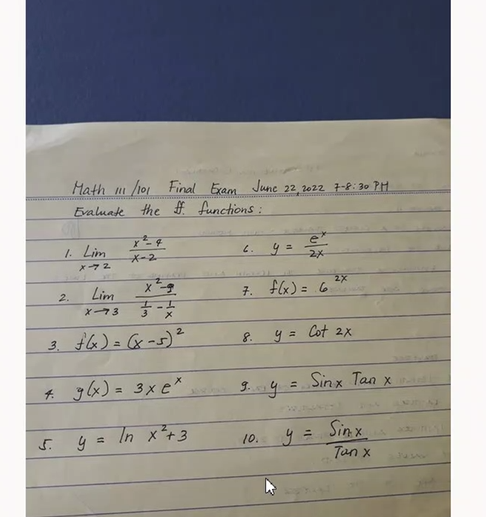 Math 111/101 Final Exam June 22, 2022 7-8:30 PM
Evaluate the ff. functions:
1. Lim x→2 x²-4 / x-2
2. Lim x→3 x²-9 / 1/3 - 1/x
3. f(x) = (x-5)²
4. g(x) = 3x eˣ
5. y = ln x²+3
6. y = eˣ / 2x
7. f(x) = 6²ˣ
8. y = Cot 2x
9. y = Sinx Tan x
10. y = Sinx / Tan x